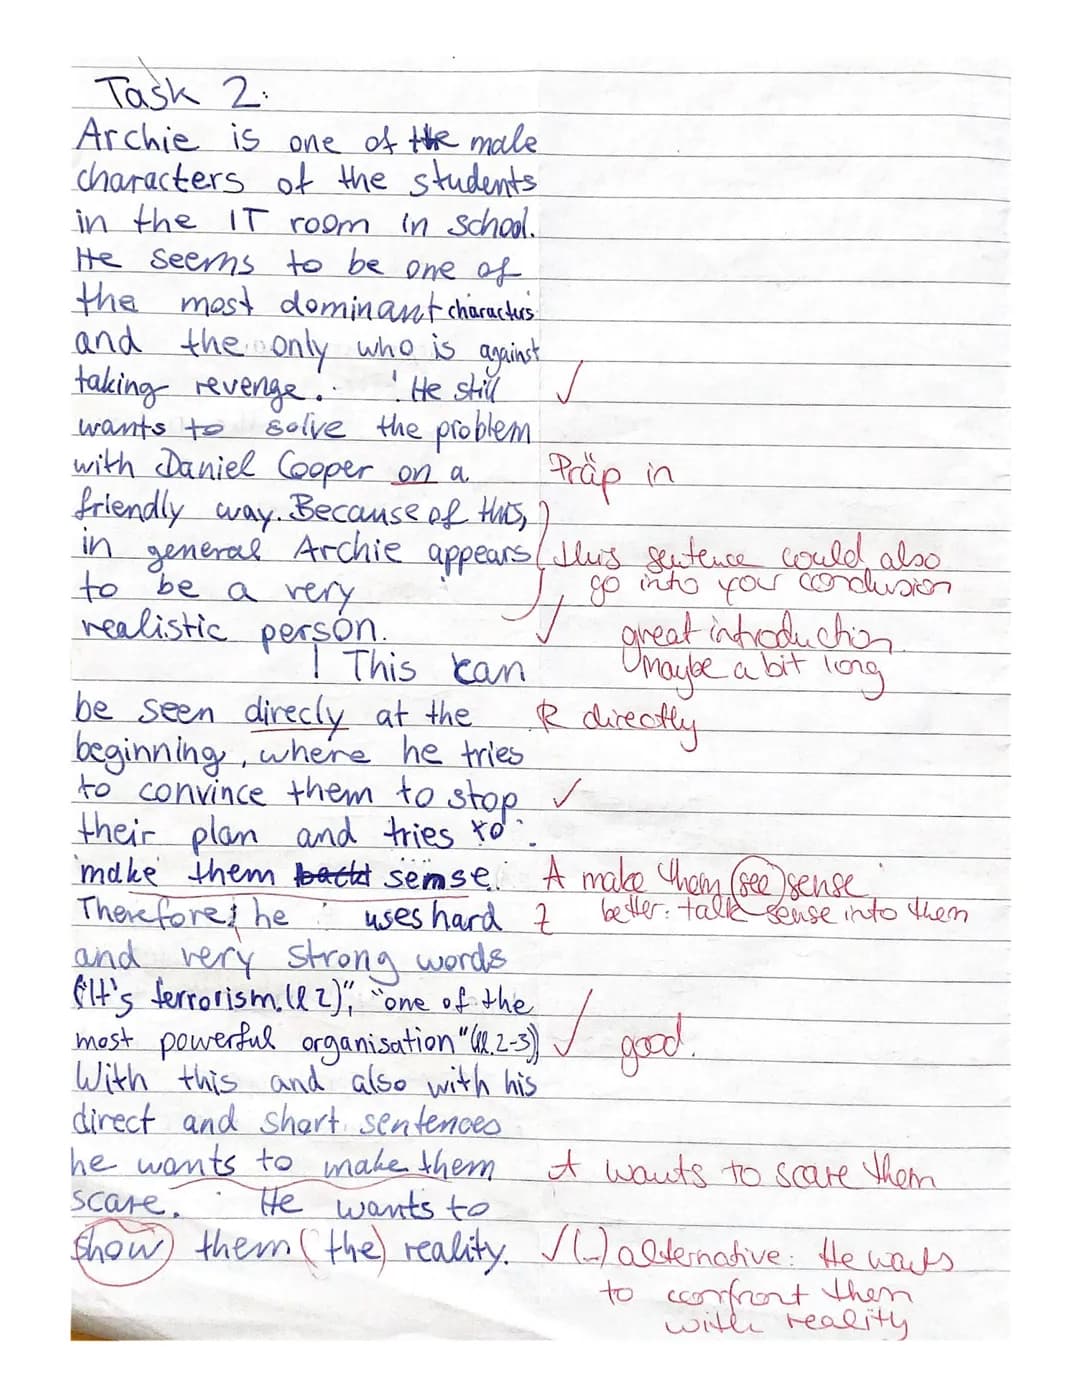 Task 2:
Archie is one of the male
characters of the students
in the IT room in school.
He seems to be one of
the most dominant characters
and the only who is against
taking revenge. ! He still ✓
wants to solve the problem
with Daniel Cooper on a Präp in
friendly way. Because of this,
in general Archie appears this sentence could also
to be a very go into your conclusion
realistic person. ✓ great introduction
! This can maybe a bit long
be seen direcly at the R directly
beginning, where he tries
to convince them to stop ✓
their plan and tries to
make them sense. A make them see sense
Therefore, he uses hard Z better: talk sense into them
and very strong words
("It's terrorism.(l 2)", "one of the
most powerful organisation"(ll. 2-3)) ✓ good.
With this and also with his
direct and short sentences
he wants to make them A wants to scare them
scare. He wants to
show them (the) reality. ✓ (_) alternative: He wants
to confront them
with reality